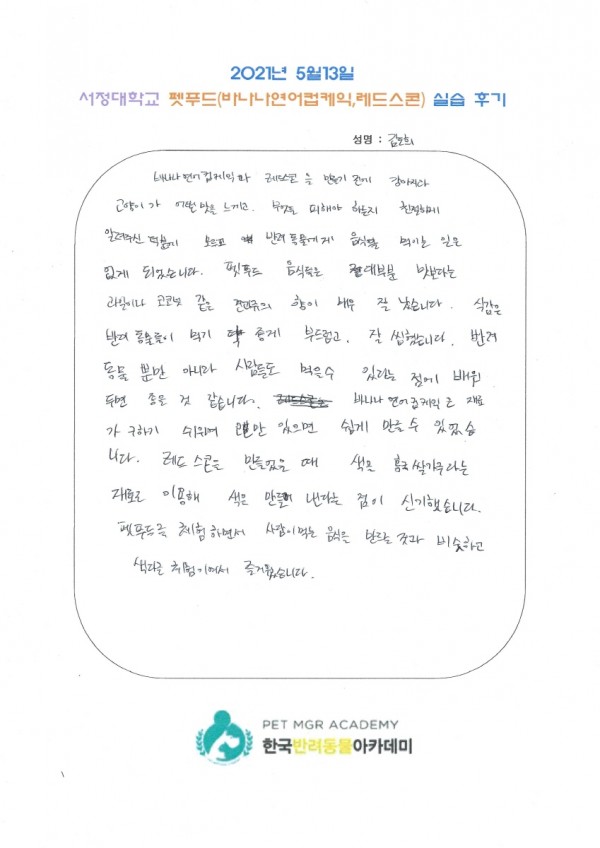 2021년 5월13일
서정대학교 펫푸드(바나나연어컵케익,레드스콘) 실습 후기
성명 :
바나나 연어컵케익과 레드스콘을 만들기 전에 강아지나
고양이가 어떤 맛을 느끼고. 무엇을 피해야 하는지 친절하게
알려주신 덕분에 모르고 반려동물에게 음식을 먹이는 일은
없게 되었습니다. 펫푸드 음식들은 대부분 맛보다는
과일이나 코코넛 같은 견과류의 향이 매우 잘 났습니다. 식감은
반려 동물들이 먹기 좋게 부드럽고, 잘 씹혔습니다. 반려
동물 뿐만 아니라 사람들도 먹을수 있다는 점에 배워
두면 좋을 것 같습니다. 바나나 연어컵케익은 재료
가 구하기 쉬워서 만 있으면 쉽게 만들 수 있겠습
니다. 레드 스콘을 만들었을 때 색은 홍국쌀가루라는
재료로 이용해 색을 만들어 낸다는 점이 신기했습니다.
펫푸드를 체험하면서 사람이먹는 음식을 만드는 것과 비슷하고
색다른 체험이어서 즐거웠습니다.
PET MGR ACADEMY
한국반려동물아카데미